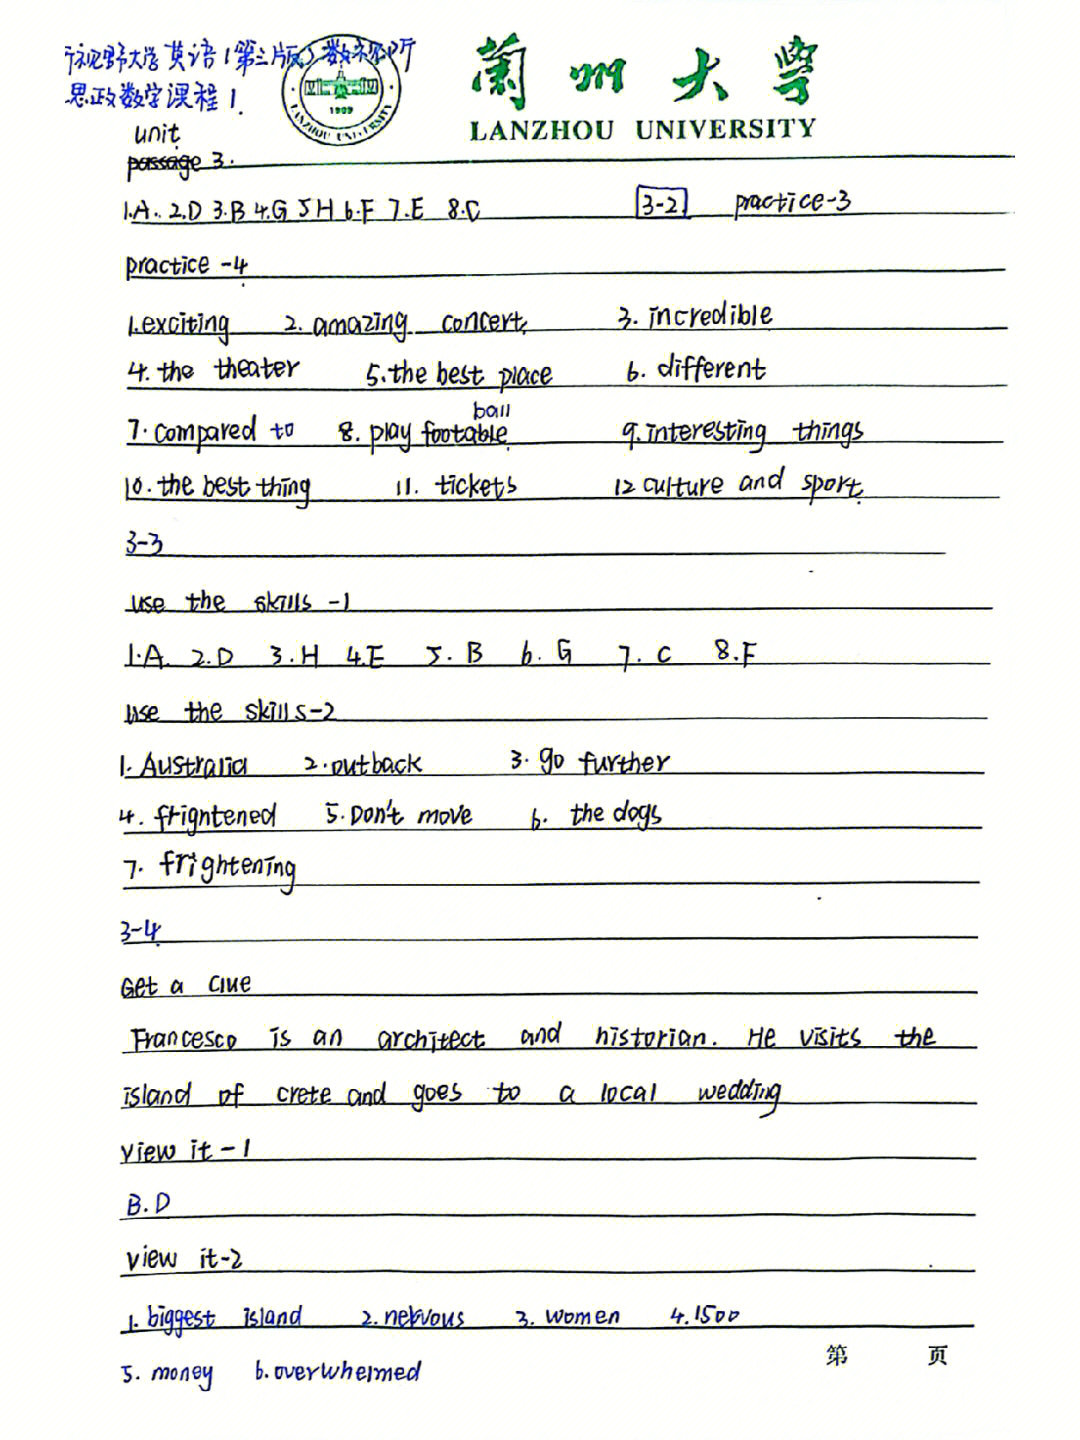 视野大学英语(第三版)数视听
思政数字课程1.
兰州大学
LANZHOU UNIVERSITY
1909
LANZHOU UNIVERSITY
unit
passage 3.
1.A. 2.D 3.B 4.G 5H 6.F 7.E 8.C 3-2 practice-3
practice -4
1.exciting 2. amazing concert, 3. incredible
4. the theater 5.the best place 6. different
ball
7. compared to 8. play footable 9.interesting things
10. the best thing 11. tickets 12 culture and sport
3-3
use the skills -1
1.A. 2.D 3.H 4.E 5. B 6. G 7. C 8.F
use the skills-2
1. Australia 2.outback 3. go further
4. frigntened 5.Don't move 6. the dogs
7. frightening
3-4
Get a clue
Francesco is an architect and historian. He visits the
island of crete and goes to a local wedding
view it -1
B.D
view it-2
1. biggest island 2. nervous 3. women 4.1500
5. money 6.overwhelmed
第 页